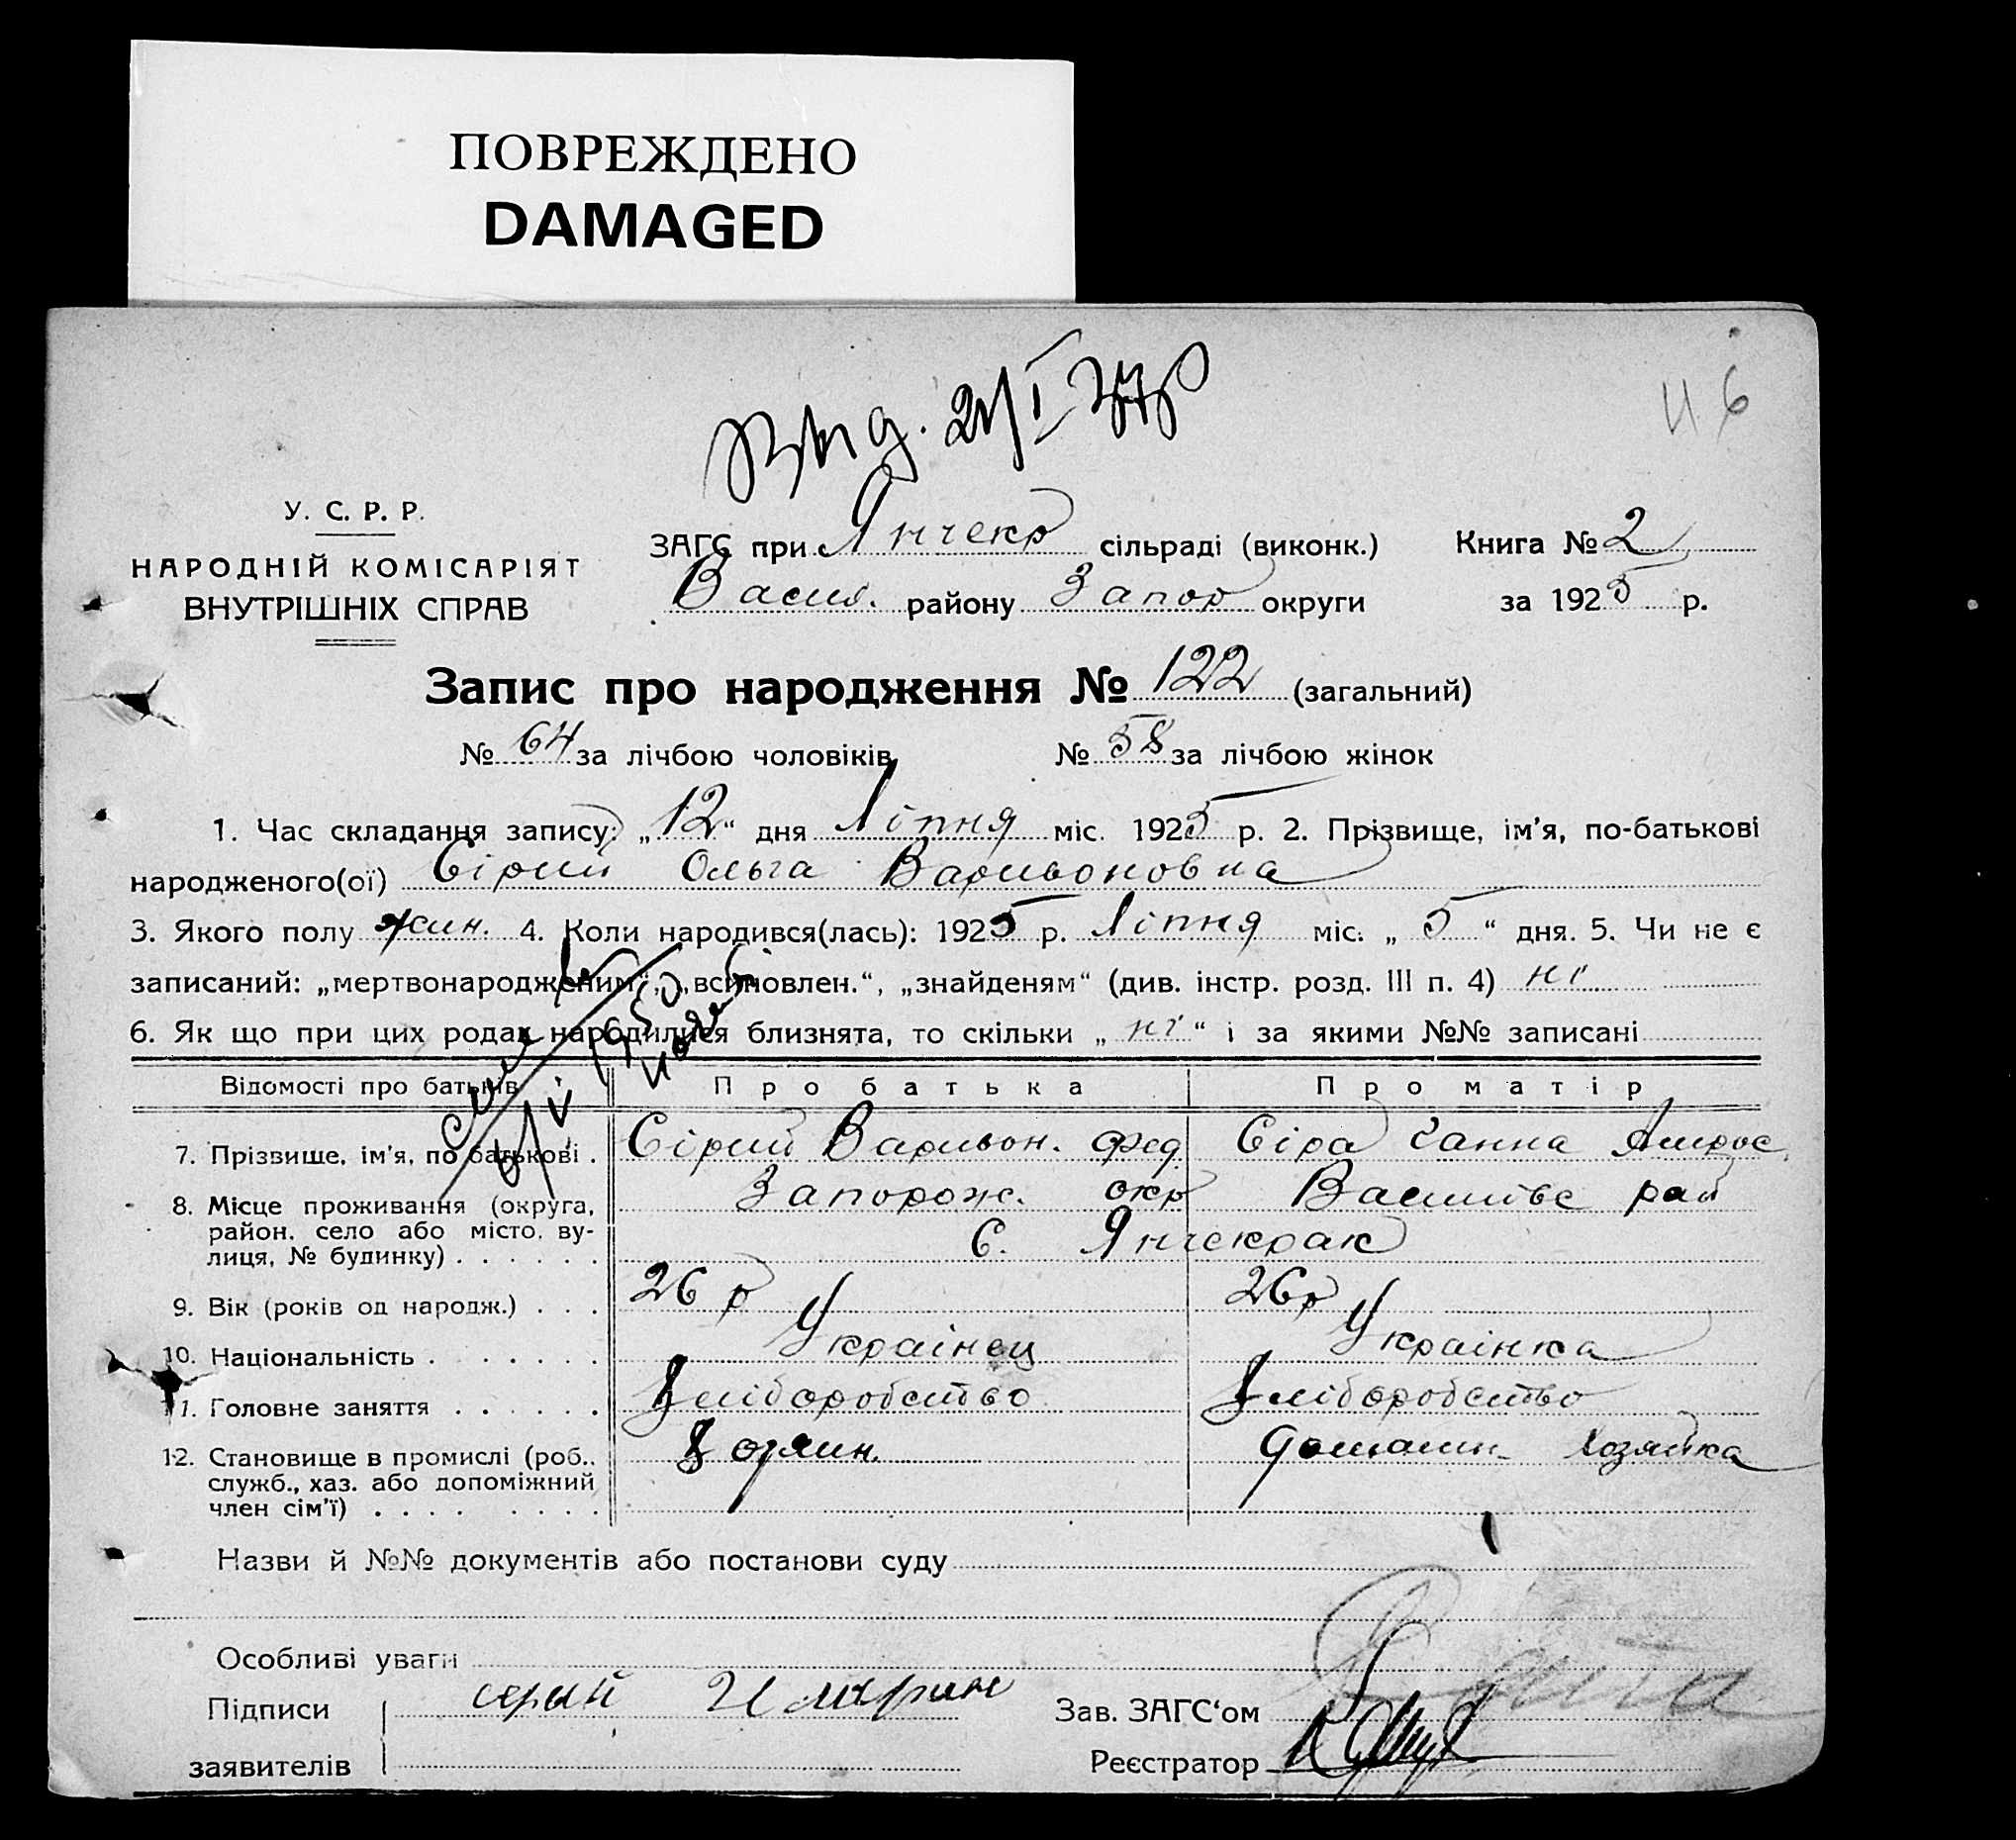 ПОВРЕЖДЕНО
DAMAGED
46
У. С. Р. Р.
НАРОДНІЙ КОМІСАРІЯТ
ВНУТРІШНІХ СПРАВ
ЗАГС при Янчекр сільраді (виконк.)
Васил. району Запор округи
Книга № 2
за 1925 р.
Запис про народження № 122 (загальний)
№ 64 за лічбою чоловіків № 58 за лічбою жінок
1. Час складання запису: „12“ дня Ліпня міс. 1925 р. 2. Прізвище, ім'я, по-батькові
народженого(ої) Сірий Ольга Варивоновна
3. Якого полу жин. 4. Коли народився(лась): 1925 р. Ліпня міс. „5“ дня. 5. Чи не є
записаний: „мертвонародженим“, „всиновлен.“, „знайденям“ (див. інстр. розд. III п. 4) ні
6. Як що при цих родах народилися близнята, то скільки „ні“ і за якими №№ записані
Відомості про батьків Про батька Про матір
7. Прізвище, ім'я, по батькові . Сірий Варивон. Фед Сіра Ганна Амврос.
8. Місце проживання (округа, Запорож. окр Василівс рай
район, село або місто, ву-
лиця, № будинку) . . . . . . С. Янчекрак
9. Вік (років од народж.) . . . 26 р 26 р
10. Національність . . . . . . Украінец Украінка
11. Головне заняття . . . . . . Хліборобство Хліборобство
12. Становище в промислі (роб., Хозяин. домашн. хозяйка
служб., хаз. або допоміжний
член сім'ї) . . . . . . . .
Назви й №№ документів або постанови суду
Особливі уваги
Підписи серый
заявителів
Зав. ЗАГС'ом
Реєстратор